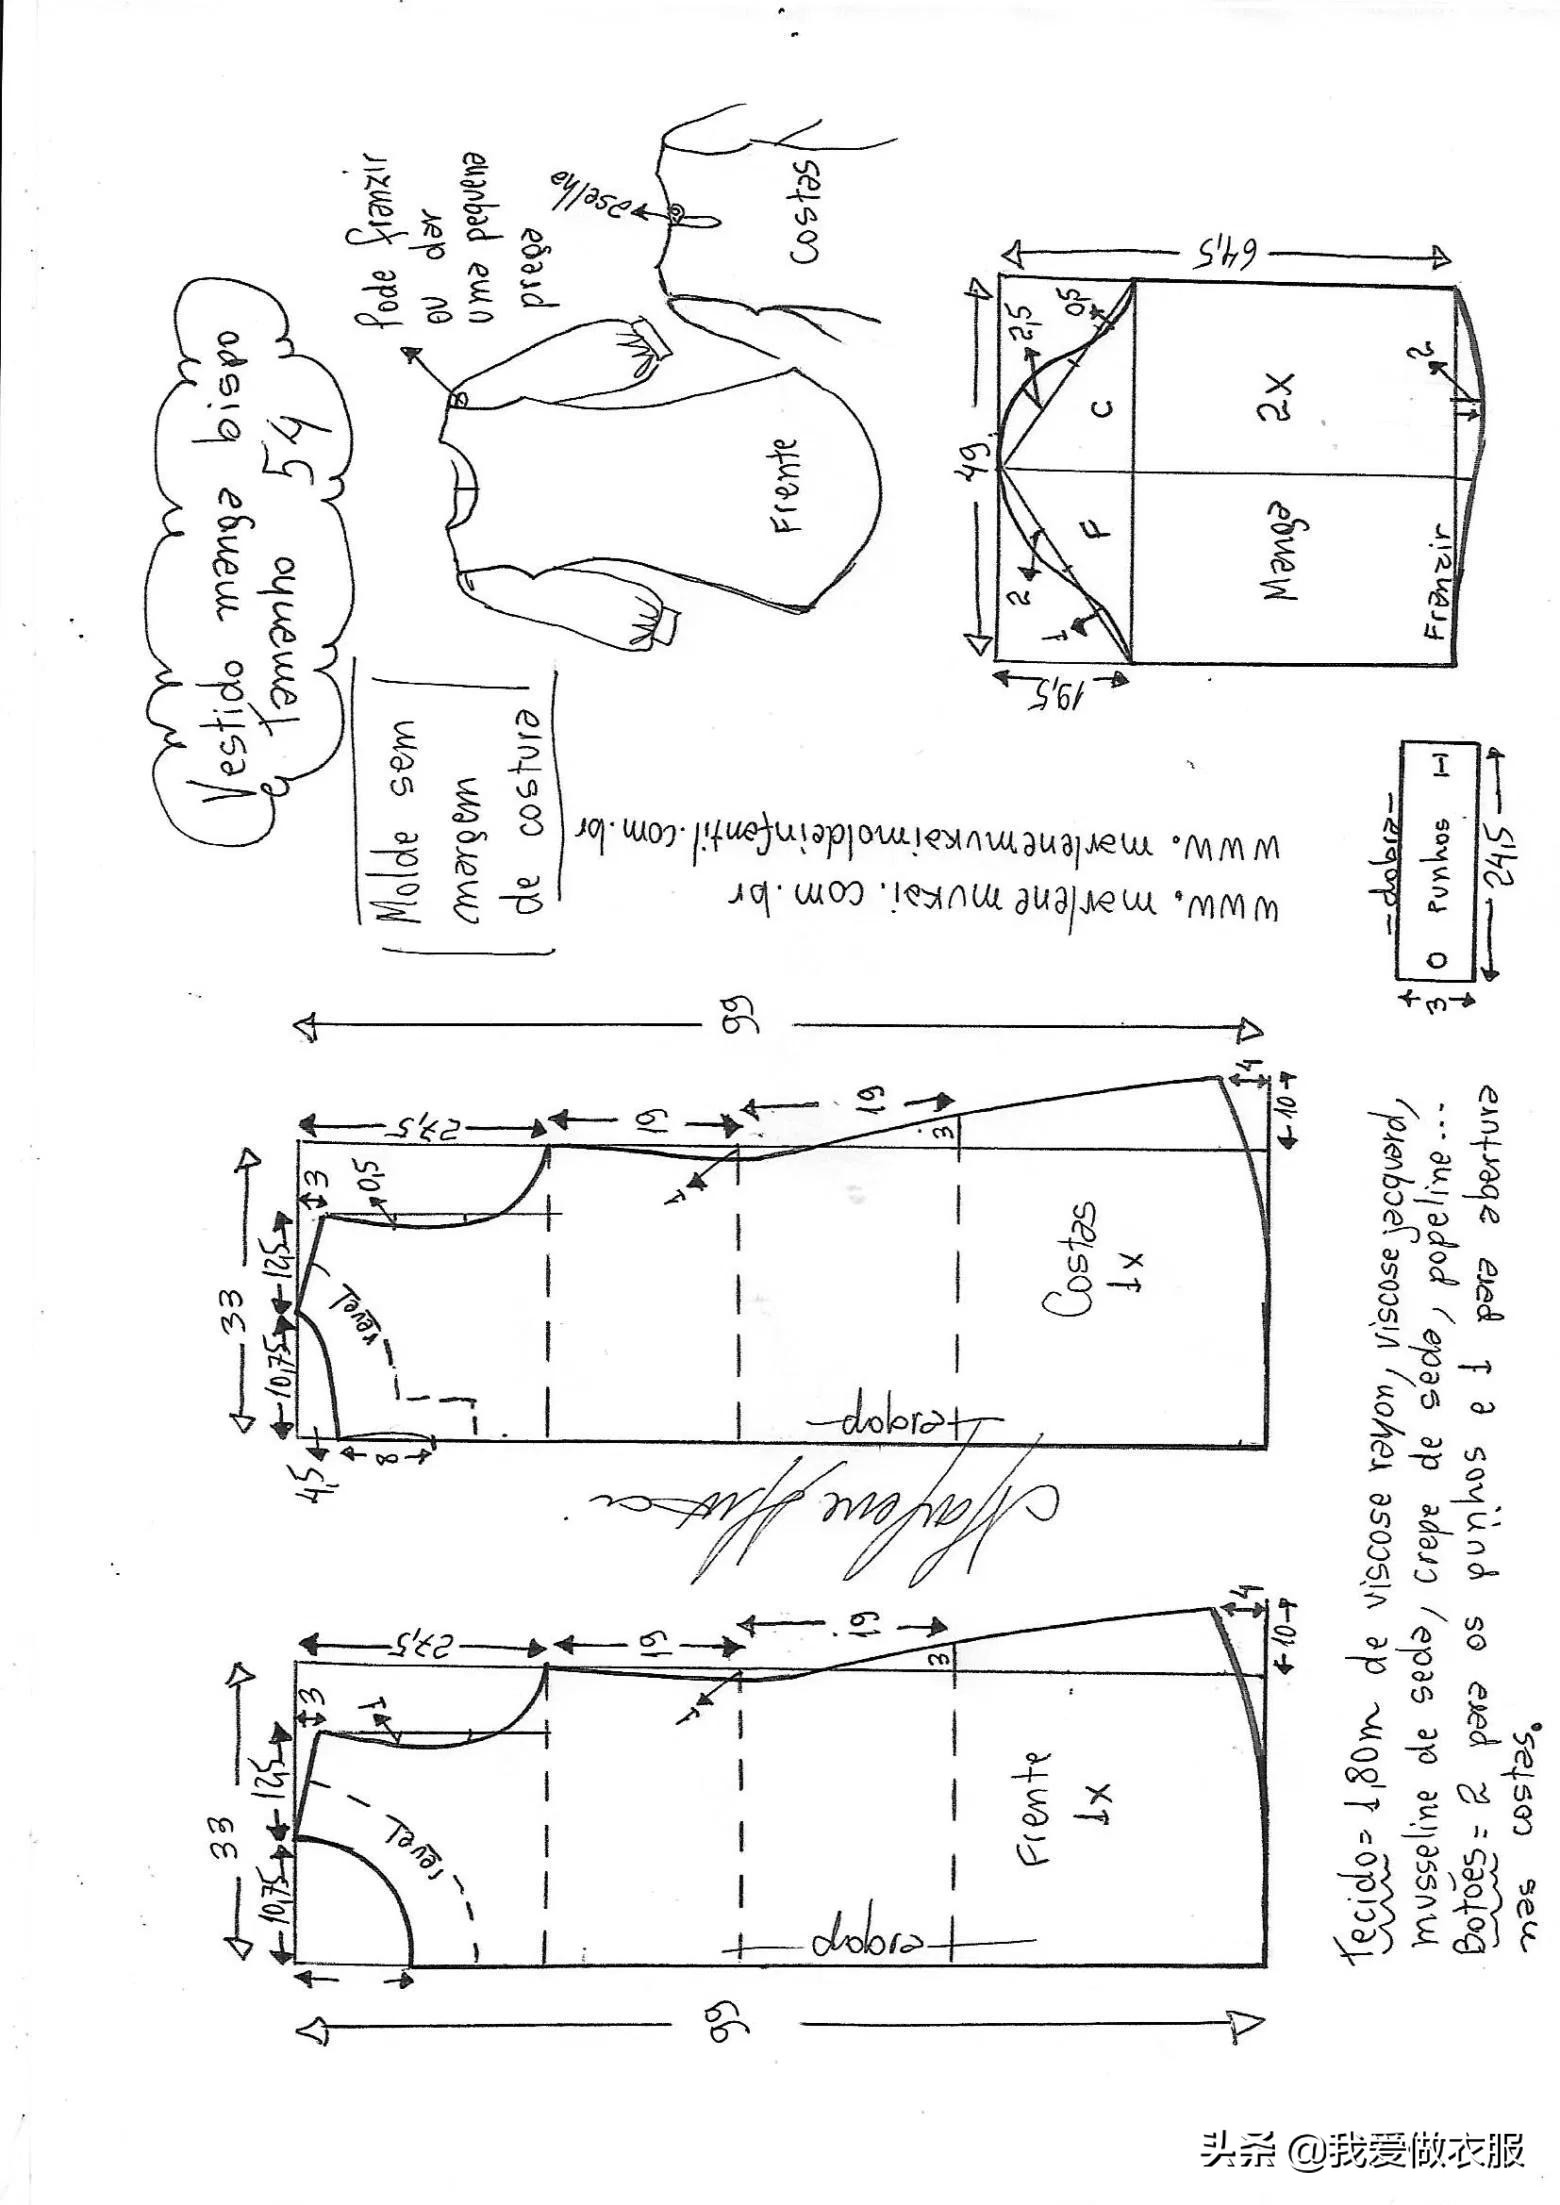 Vestido manga bispo
tamanho 54
Molde sem
margem
de costura
Pode franzir
ou dar
uma pequena
prega
aselha
Costas
Frente
www.marlenemukaimoldeinfantil.com.br
www.marlenemukai.com.br
33
10,75
12,5
3
1
27,5
19
19
1
3
4
10
99
revel
Frente
1x
dobra
33
10,75
12,5
3
0,5
4,5
8
27,5
19
19
1
3
4
10
99
revel
Costas
1x
dobra
49
64,5
19,5
2
1
2,5
0,5
F
C
Manga
2x
Franzir
2
dobra
O Punhos H
3
24,5
Tecido = 1,80m de viscose rayon, viscose jacquard,
musseline de seda, crepe de seda, popeline...
Botões = 2 para os punhos e 1 para abertura
nas costas.
头条 @我爱做衣服